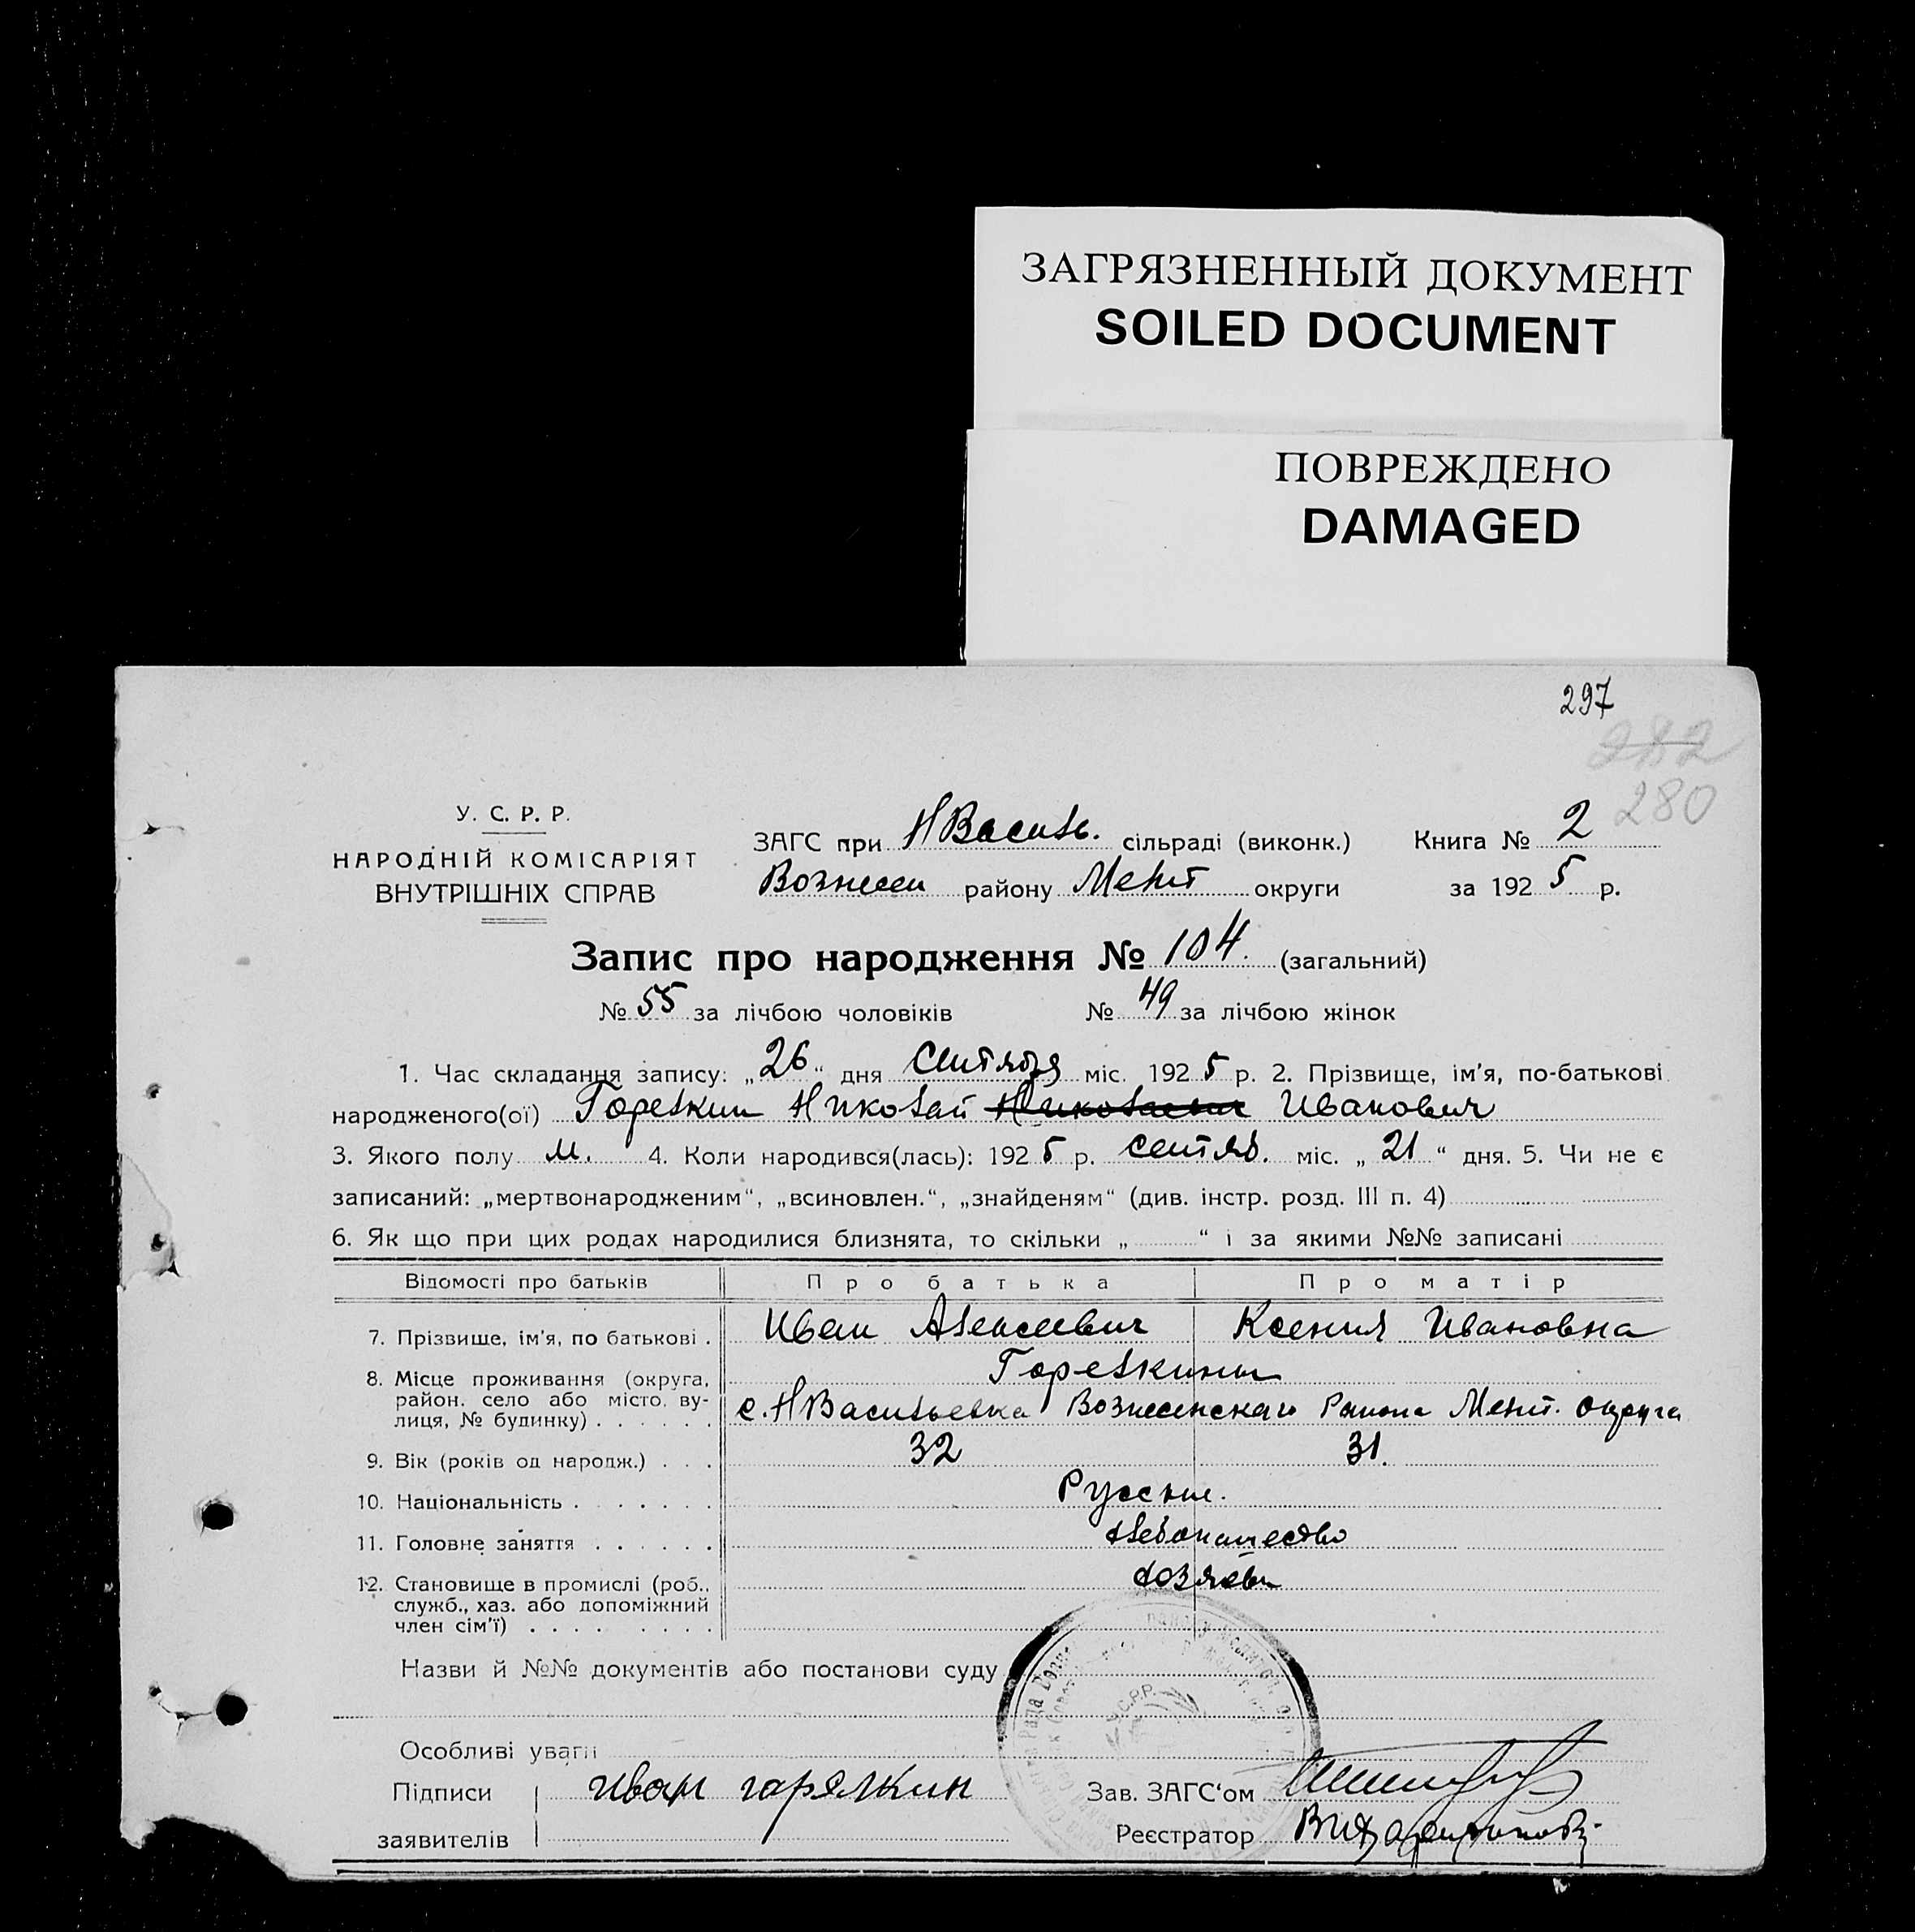 ЗАГРЯЗНЕННЫЙ ДОКУМЕНТ
SOILED DOCUMENT
ПОВРЕЖДЕНО
DAMAGED
297
282
280
У. С. Р. Р.
НАРОДНІЙ КОМІСАРІЯТ
ВНУТРІШНІХ СПРАВ
ЗАГС при НВасиль. сільраді (виконк.) Книга № 2
Вознесен району Мелит округи за 1925 р.
Запис про народження № 104. (загальний)
№ 55 за лічбою чоловіків № 49 за лічбою жінок
1. Час складання запису: „26“ дня Сентября міс. 1925 р. 2. Прізвище, ім’я, по-батькові
народженого(ої) Горелкин Николай Николаевич Иванович
3. Якого полу м. 4. Коли народився(лась): 1925 р. сентяб. міс. „21“ дня. 5. Чи не є
записаний: „мертвонародженим“, „всиновлен.“, „знайденям“ (див. інстр. розд. III п. 4)
6. Як що при цих родах народилися близнята, то скільки „ “ і за якими №№ записані
Відомості про батьків Про батька Про матір
7. Прізвище, ім’я, по батькові . Иван Алексеевич Ксения Ивановна
Горелкины
8. Місце проживання (округа,
район. село або місто, ву-
лиця, № будинку) . . . . . . с. НВасильевка Вознесенскаго Района Мелит. округа
9. Вік (років од народж.) . . . 32 31.
10. Національність . . . . . . . Русские.
11. Головне заняття . . . . . . Хлебопашество
12. Становище в промислі (роб., хозяева
служб., хаз. або допоміжний
член сім’ї) . . . . . . . .
Назви й №№ документів або постанови суду
У.С.Р.Р.
Особливі уваги
Підписи иван горялкин Зав. ЗАГС‘ом
заявителів Реєстратор